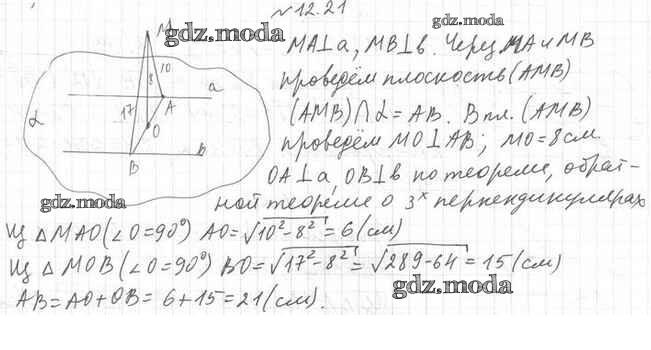 №12.21
gdz.moda
gdz.moda
M
MA⊥a, MB⊥b. Через MA и MB
проведём плоскость (AMB)
(AMB)∩α = AB. В пл. (AMB)
проведём MO⊥AB; MO=8см
OA⊥a, OB⊥b по теореме, обрат-
ной теореме о 3х перпендикулярах
10
8
17
a
A
α
O
B
b
gdz.moda
Из △MAO (∠O=90°) AO=√10²-8² = 6(см)
Из △MOB (∠O=90°) BO=√17²-8² = √289-64 = 15(см)
gdz.moda
AB=AO+OB= 6+15=21(см).